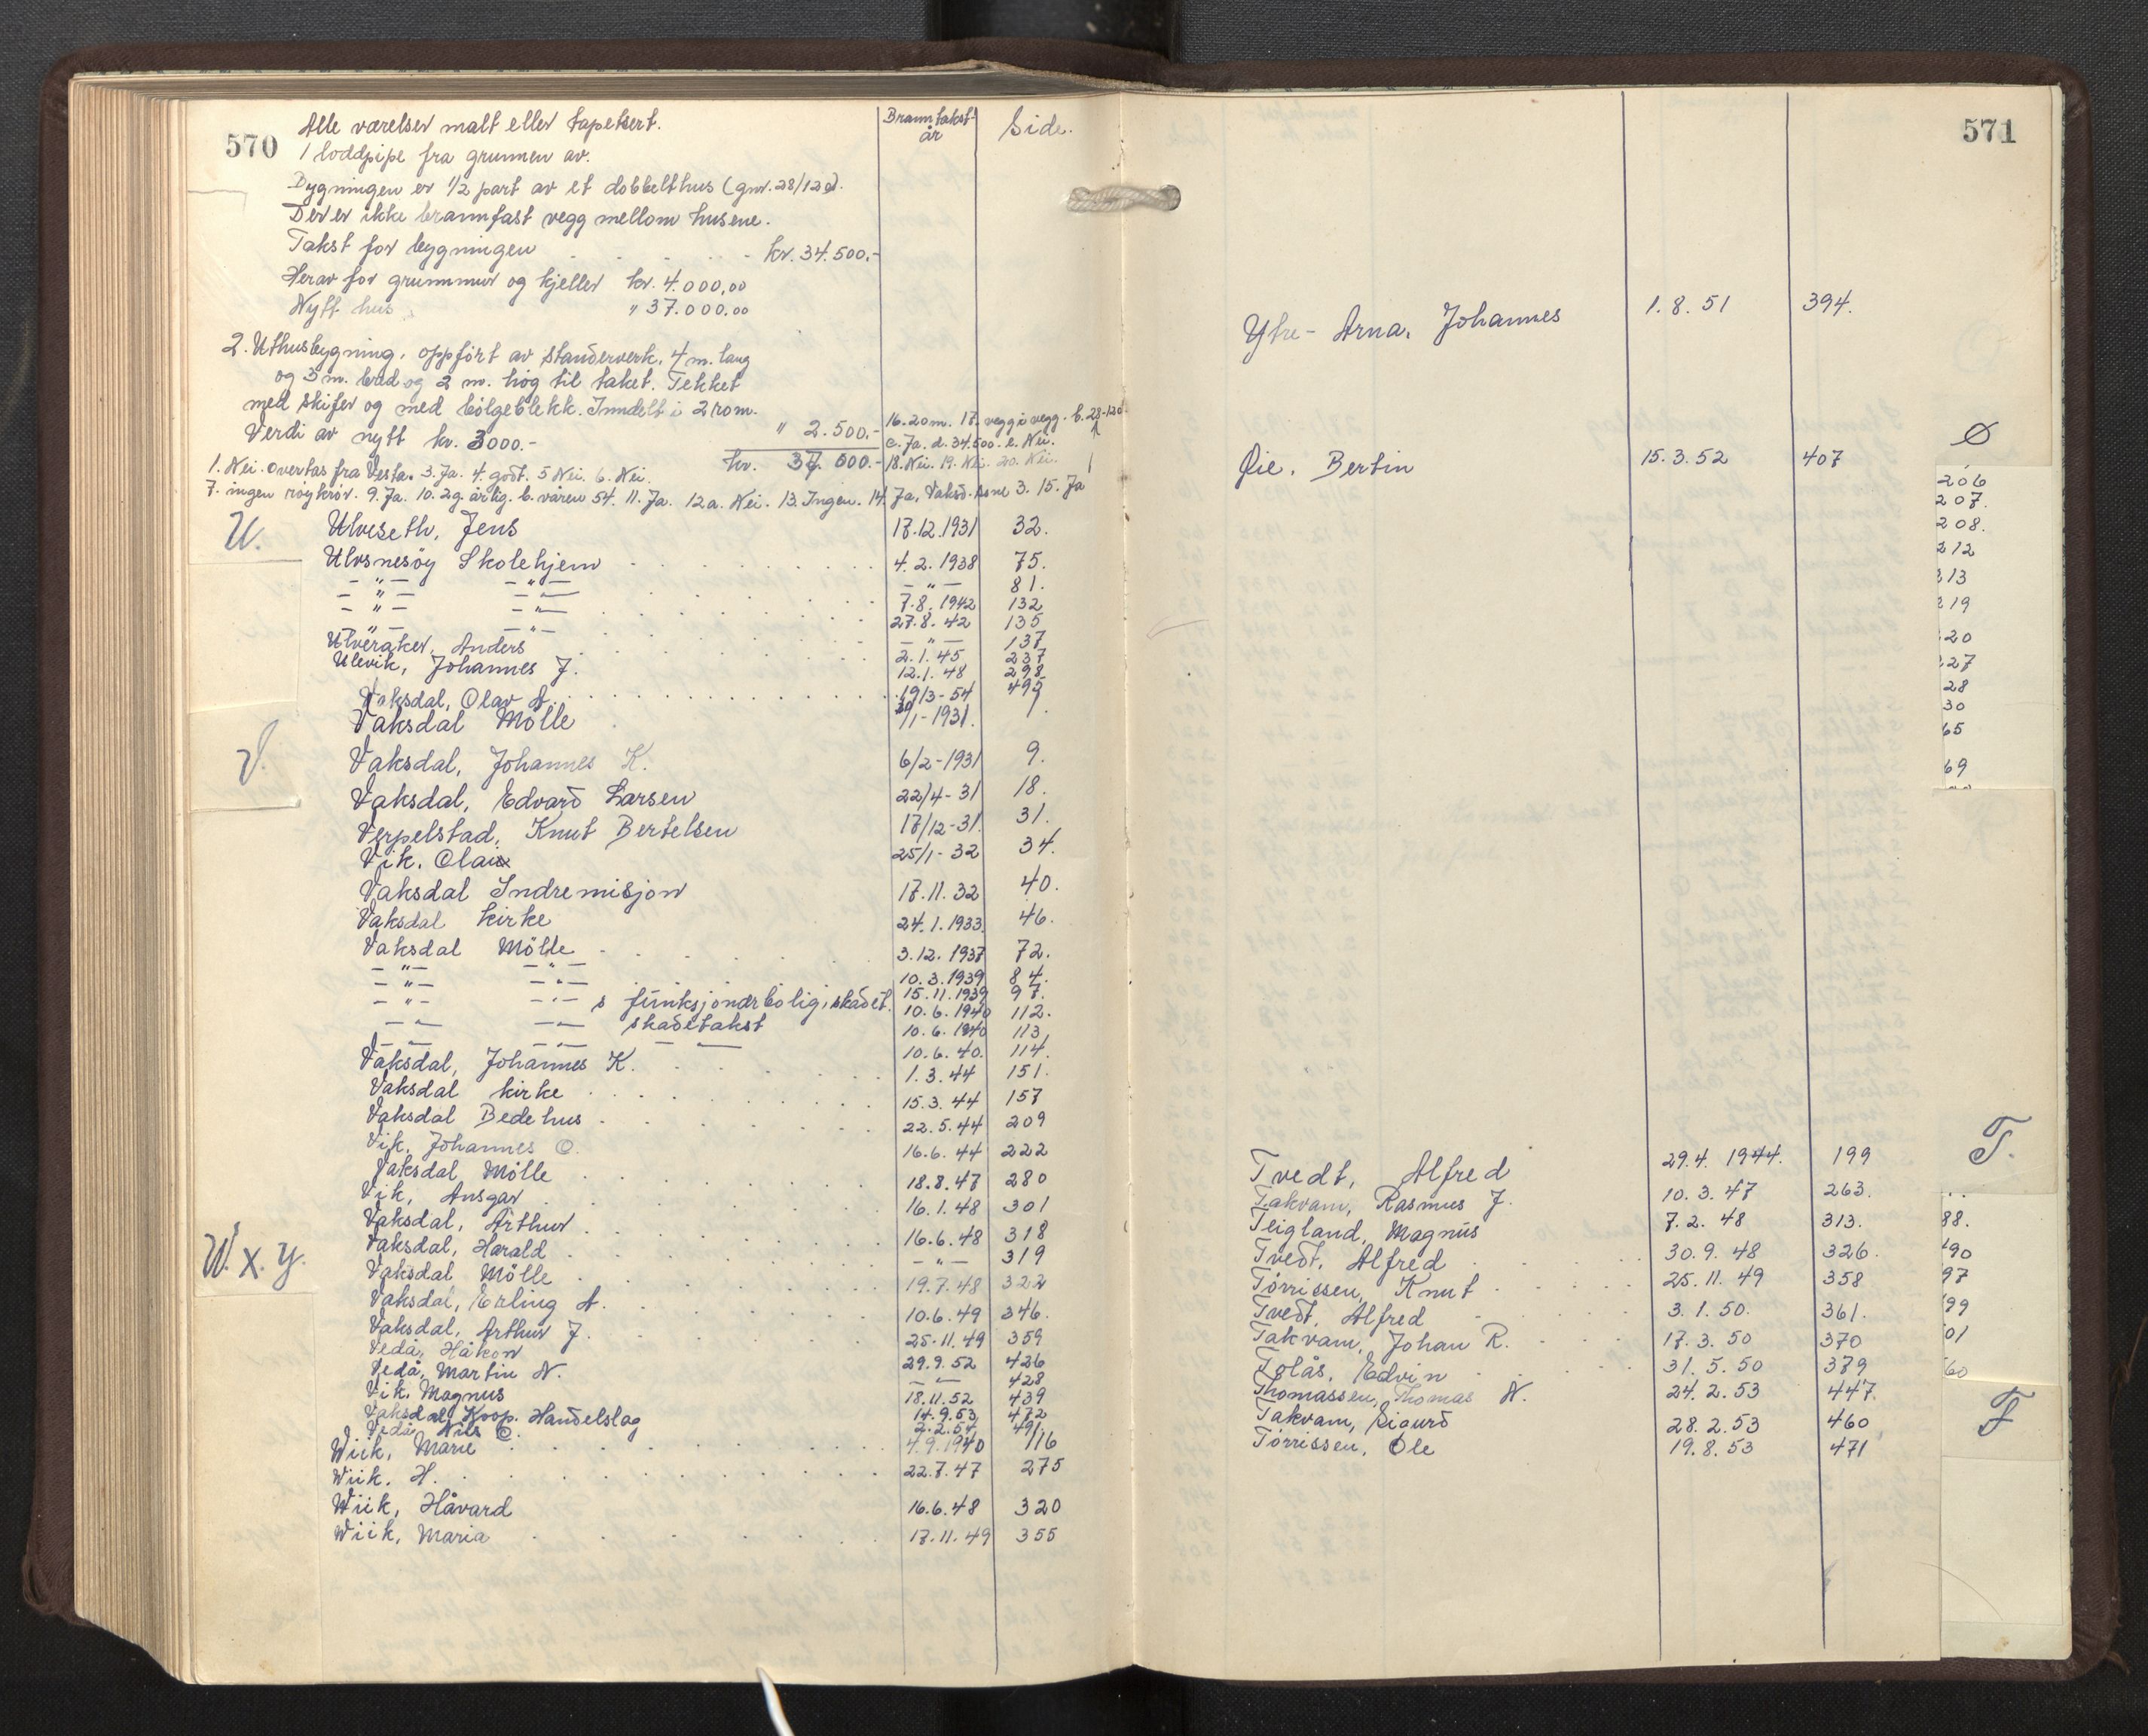 570
Alle værelser malt eller tapetsert.
1 loddpipe fra grunnen av.
Bygningen er 1/2 part av et dobbelthus (gnr. 28/120).
Der er ikke brannfast vegg mellom husene.
Takst for bygningen kr. 34.500.-
Herav for grunnmur og kjeller kr. 4.000,00
Nytt hus " 37.000.00
2. Uthusbygning, oppført av standerverk, 4 m. lang
og 3 m. bred og 2 m. høg til taket. Tekket
med skifer og med bölgeblekk. Inndelt i 2 rom.
Verdi av nytt kr. 3000.- " 2.500.-
kr. 37.000.-
16. 20 m. 17. vegg i vegg. b. 28-120
c. Ja. d. 34.500. e. Nei.
18. Nei. 19. Nei. 20. Nei.
1. Nei. overtas fra Vesta. 3. Ja. 4. godt. 5 Nei. 6. Nei.
7. ingen röykrör. 9. Ja. 10. 2 g. årlig. b. våren 54. 11. Ja. 12a. Nei. 13. Ingen. 14. Ja, Vaksd. 3. 15. Ja
Branntakst-år Side.
U.
Ulveseth, Jens 17.12.1931 32.
Ulvsnesøy Skolehjem 4.2.1938 75.
—"— —"— —"— 81.
—"— —"— 7.8.1942 132
—"— —"— 27.8.42 135
Ulveraker, Anders —"— 137
Ulevik, Johannes J. 2.1.45 237
12.1.48 298
Vaksdal, Olav A. 19/3-54 495
V.
Vaksdal Mölle 30/1-1931. 1.
Vaksdal, Johannes K. 6/2-1931 9.
Vaksdal, Edvard Larsen 22/4-31 18.
Verpelstad, Knut Bertelsen 17/12-31. 31.
Vik, Olai 25/1-32 34.
Vaksdal Indremisjon 17.11.32 40.
Vaksdal kirke 24.1.1933. 46.
Vaksdal Mölle 3.12.1937 72.
—"— —"— 10.3.1939 84.
—"— —"— s funksjonærbolig, skadet. 15.11.1939 97.
—"— —"— skadetakst 10.6.1940 112.
—"— —"— — — 10.6.1940 113,
10.6.40. 114.
Vaksdal, Johannes K. 1.3.44 151.
Vaksdal kirke 15.3.44 157
Vaksdal Bedehus 22.5.44 209
Vik, Johannes O. 16.6.44 222
Vaksdal Mölle 18.8.47 280
Vik, Ansgar 16.1.48 301
Vaksdal, Arthur 16.6.48 318
Vaksdal, Harald —"— 319
Vaksdal Mölle 19.7.48 322
Vaksdal, Erling A. 10.6.49 346.
Vaksdal, Arthur J. 25.11.49 359
Vedå, Håkon 29.9.52 426
Vedå, Martin N. —"— 428
Vik, Magnus 18.11.52 439
Vaksdal Koop. Handelslag 14.9.53 472
Vedå, Nils O. 2.2.54 491
W. X. Y.
Wiik, Marie 4.9.1940 116
Wiik, H. 22.7.47 275
Wiik, Håvard 16.6.48 320
Wiik, Maria 17.11.49 355
571
Ytre-Arna, Johannes 1.8.51 394.
Ø
Øie, Bertin 15.3.52 407
206
207.
208.
212
213
219
20
27
28
30
65
69
T.
Tvedt, Alfred 29.4.1944. 199
Takvam, Rasmus J. 10.3.47 263.
Teigland, Magnus 7.2.48 313.
Tvedt, Alfred 30.9.48 326.
Tørrissen, Knut 25.11.49 358
Tvedt, Alfred 3.1.50. 361.
Takvam, Johan R. 17.3.50 370
Tolås, Edvin 31.5.50 379
Thomassen, Thomas N. 24.2.53 447.
Takvam, Sigurd 28.2.53 460
Tørrissen, Ole 19.8.53 471
88.
90
97
99
01
60